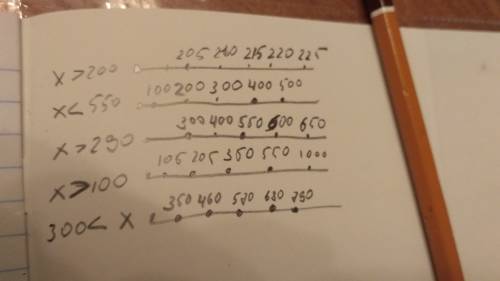 x > 200 205 210 215 220 225
x < 550 100 200 300 400 500
x > 290 300 400 550 600 650
x > 100 105 205 350 550 1000
300 < x 350 460 570 680 790